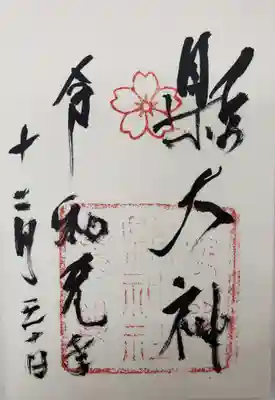 縣大神
令和元年
十二月三十日